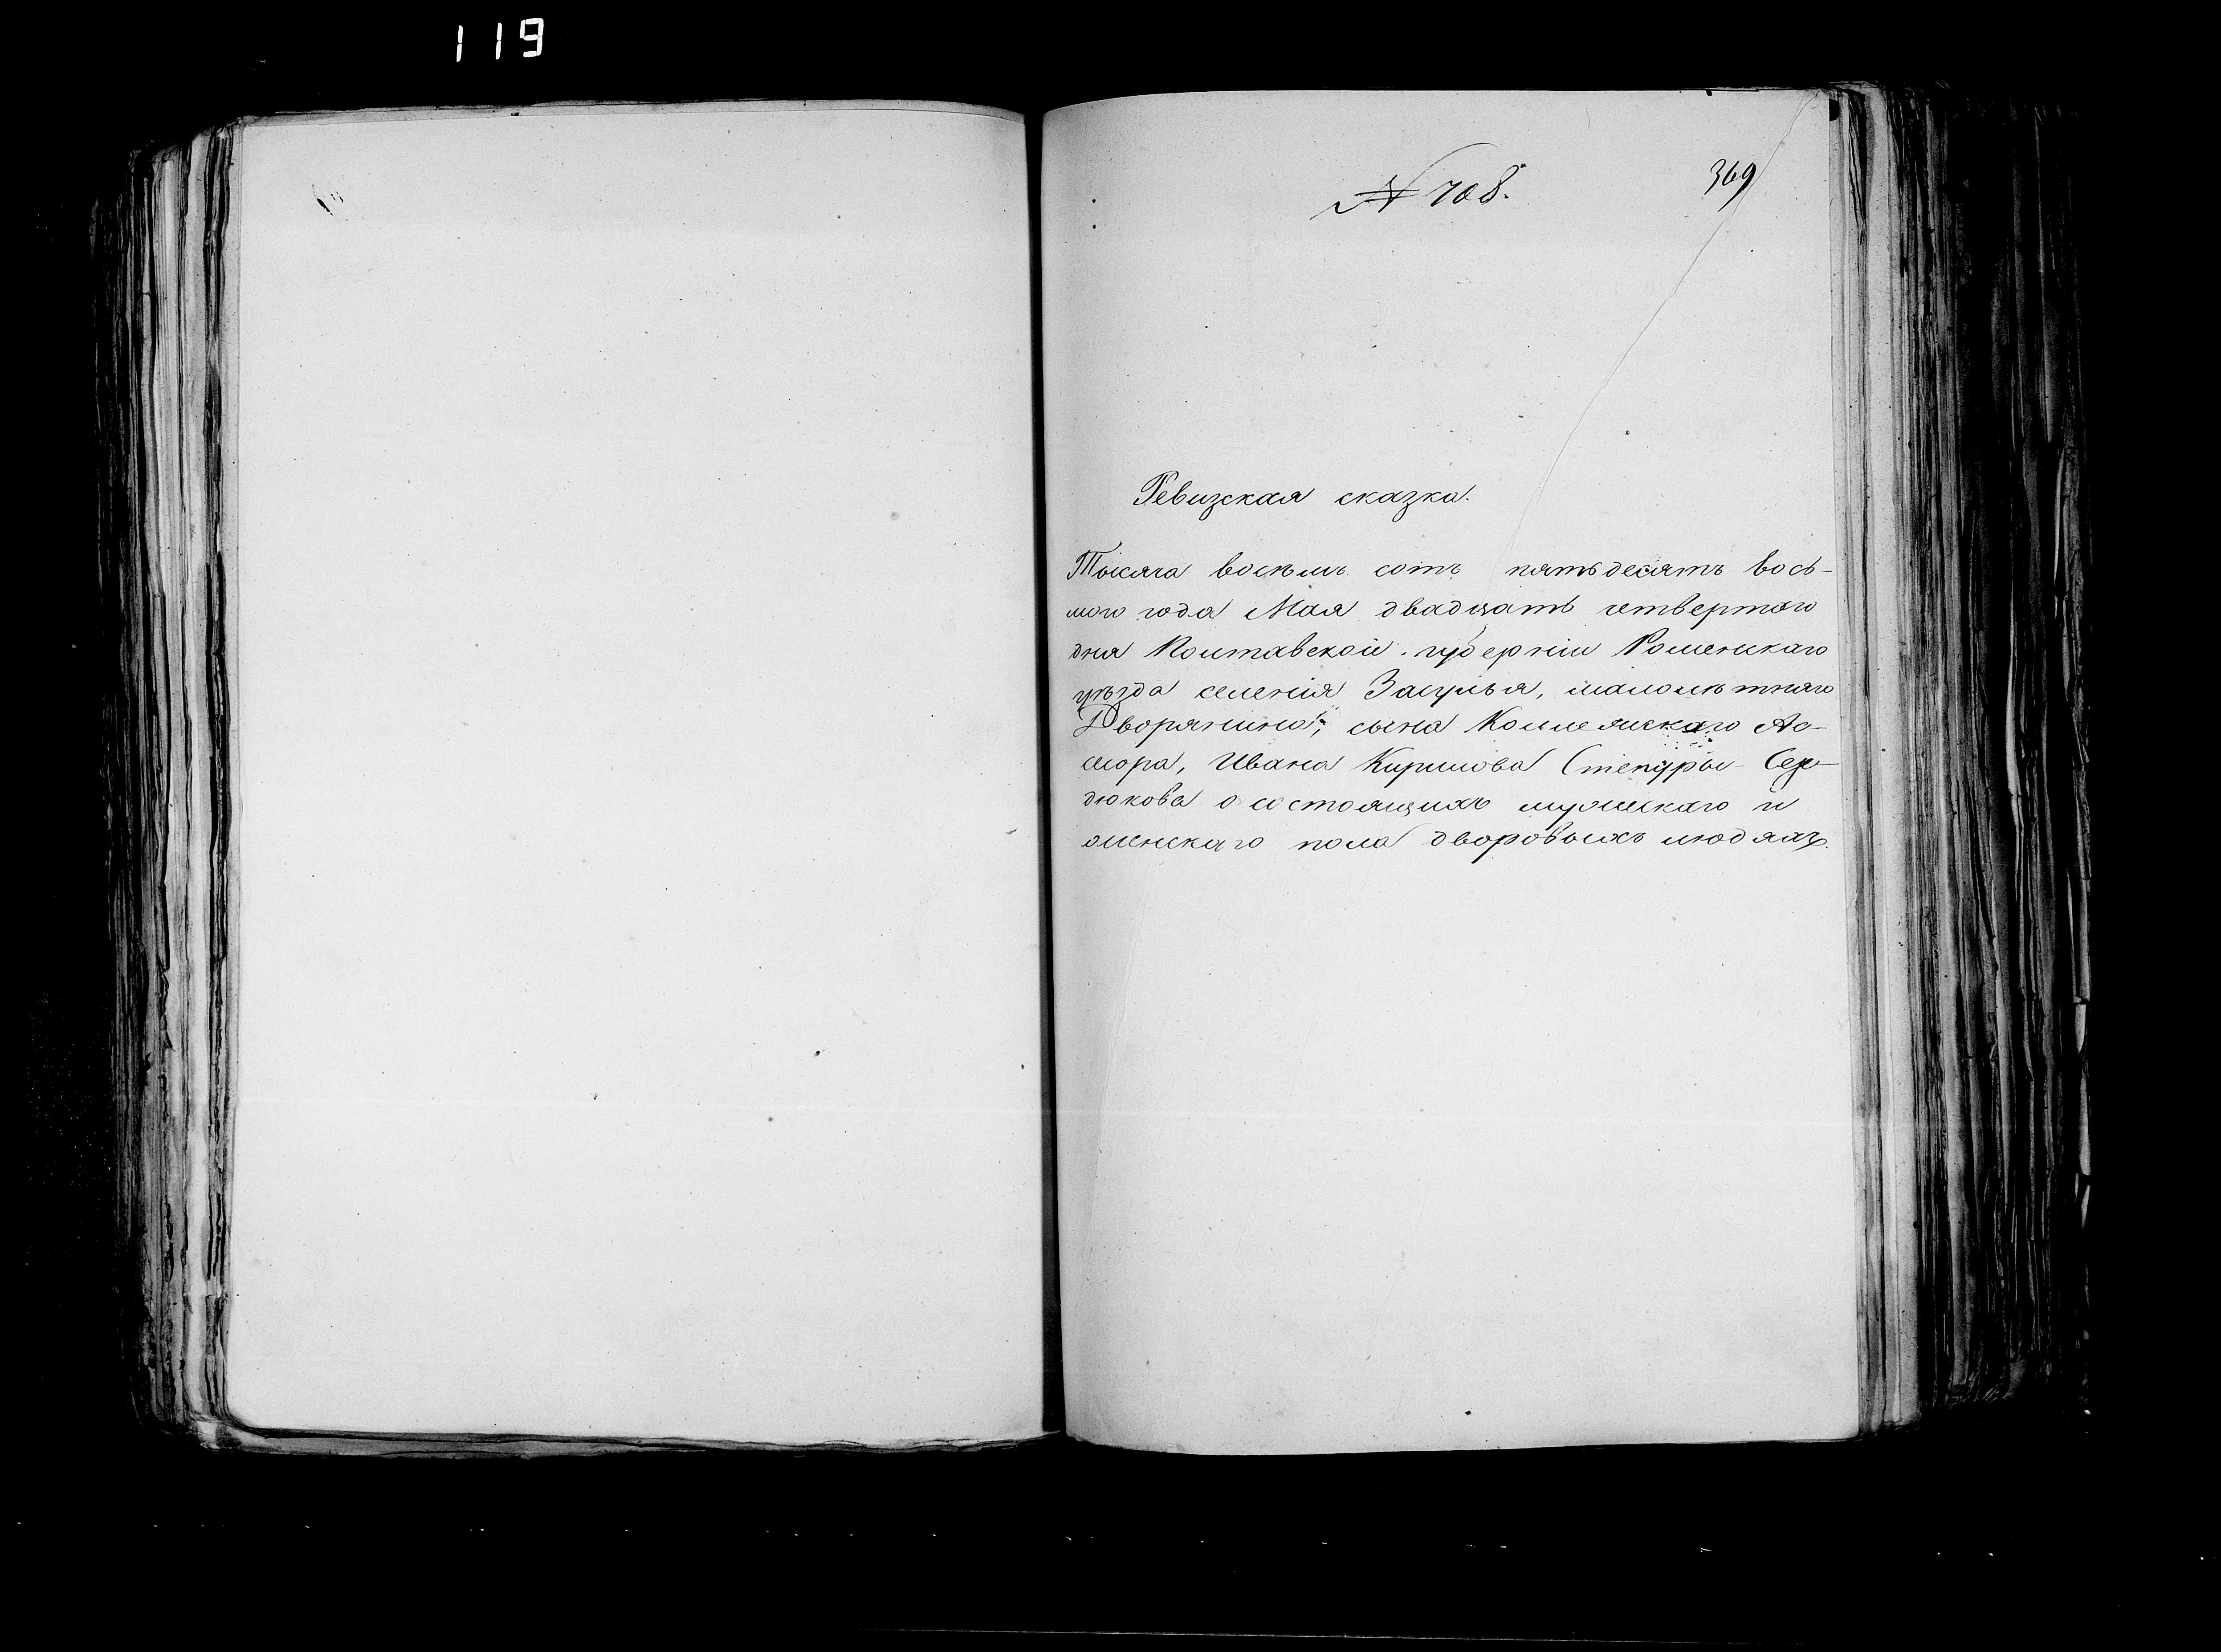 119
№ 708.
369
Ревизская сказка.
Тысяча восемь сотъ пятьдесятъ вось-
мого года Мая двадцать четвертого
дня Полтавской губерніи Роменскаго
уѣзда селенія Засулья, малолѣтняго
Дворянина, сына Коллежскаго Ас-
сесора, Ивана Кирилова Степуры-Сер-
дюкова о состоящихъ мужескаго и
женскаго пола дворовыхъ людяхъ.